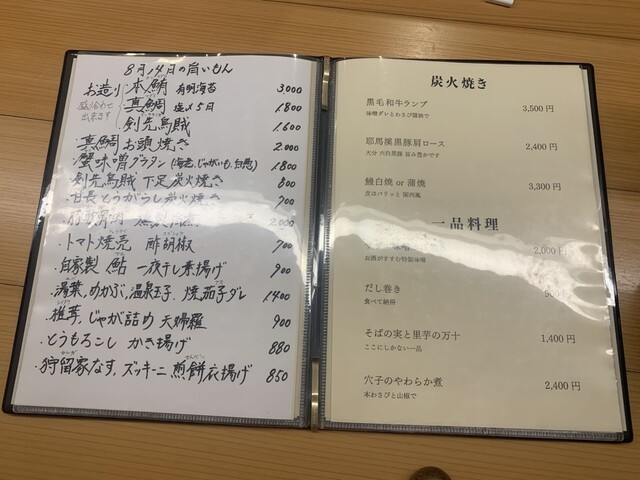 8月14日の旨いもん
お造り 本鮪 有明海苔 3,000
盛り合わせ 出来ます
真鯛 塩〆5日 1.800
剣先烏賊 1.600
・真鯛 お頭焼き 2.000
・蟹味噌グラタン (海老、じゃがいも、白葱) 1.800
・剣先烏賊 下足炭火焼き 800
・甘長とうがらし炭火焼き 700
2,000
・トマト焼売 酢胡椒 700
・自家製 鮎 一夜干し素揚げ 900
・湯葉、めかぶ、温泉玉子 焼茄子ダレ 1400
・椎茸、じゃが詰め 天婦羅 900
・とうもろこし かき揚げ 880
・狩留家なす、ズッキーニ 煎餅衣揚げ 850
炭火焼き
黒毛和牛ランプ 3,500円
味噌ダレとわさび醤油で
耶馬溪黒豚肩ロース 2,400円
大分 六白黒豚 旨み豊かです
鰻白焼 or 蒲焼 3,300円
皮はパリッと 関西風
一品料理
2,000円
お酒がすすむ特製味噌
だし巻き 900円
食べて納得
そばの実と里芋の万十 1,400円
ここにしかない一品
穴子のやわらか煮 2,400円
本わさびと山椒で